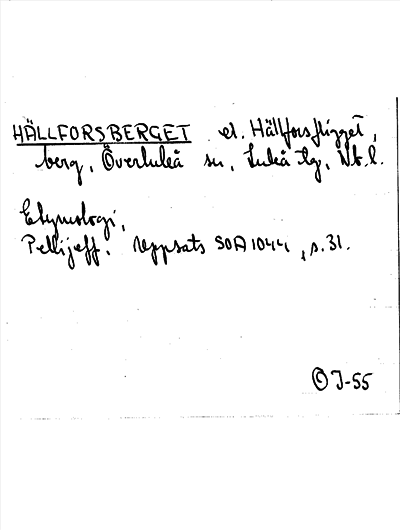 HÄLLFORSBERGET el. Hällforsflygget,
berg, Överluleå sn, Luleå tg, Nb.l.
Etymologi,
Pellijeff. Uppsats SOA 1044, s. 31.
© J-55